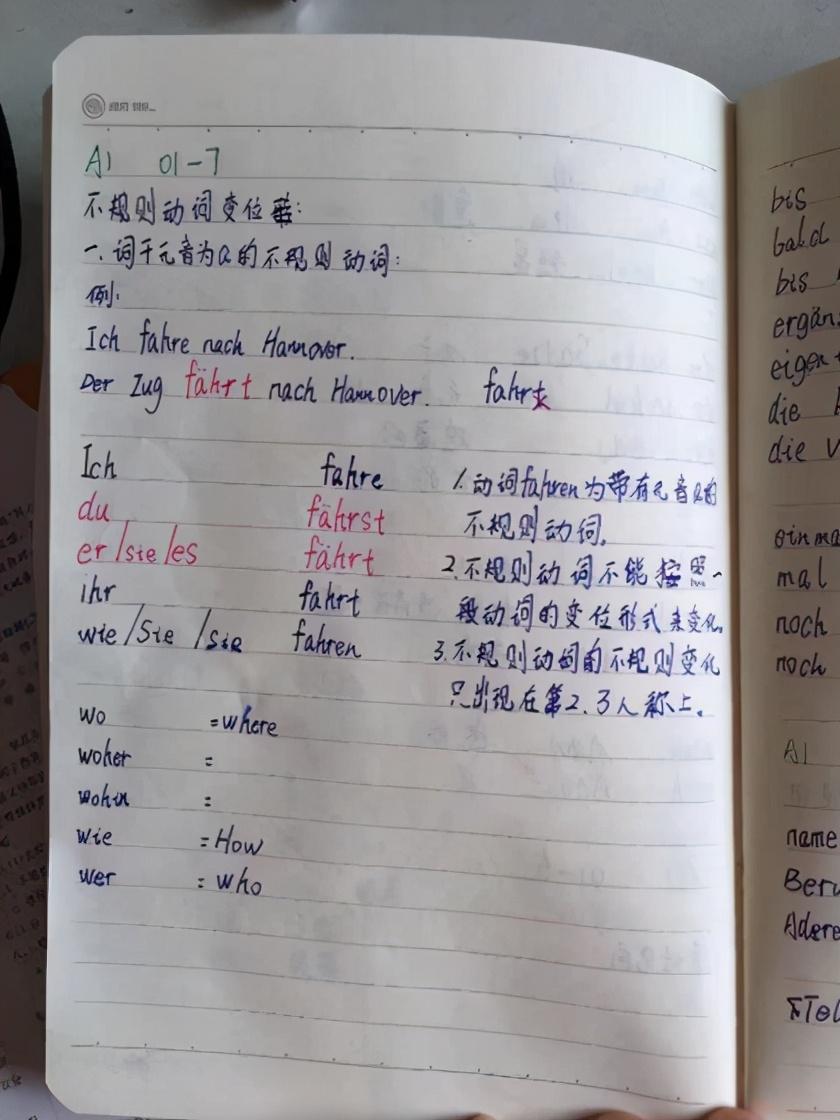 A1 01-7
不规则动词变位表:
一. 词干元音为a的不规则动词:
例:
Ich fahre nach Hannover.
Der Zug fährt nach Hannover. fahrt
Ich fahre
du fährst
er/sie/es fährt
ihr fahrt
wie/Sie/sie fahren
1. 动词fahren为带有元音a的
不规则动词。
2. 不规则动词不能按照一
般动词的变位形式来变化。
3. 不规则动词的不规则变化
只出现在第2.3人称上。
wo =where
woher =
wohin =
wie =How
wer = who
bis
bald
bis
ergän
eigen
die
die
einma
mal
noch
noch
A1
name
Beru
Adere